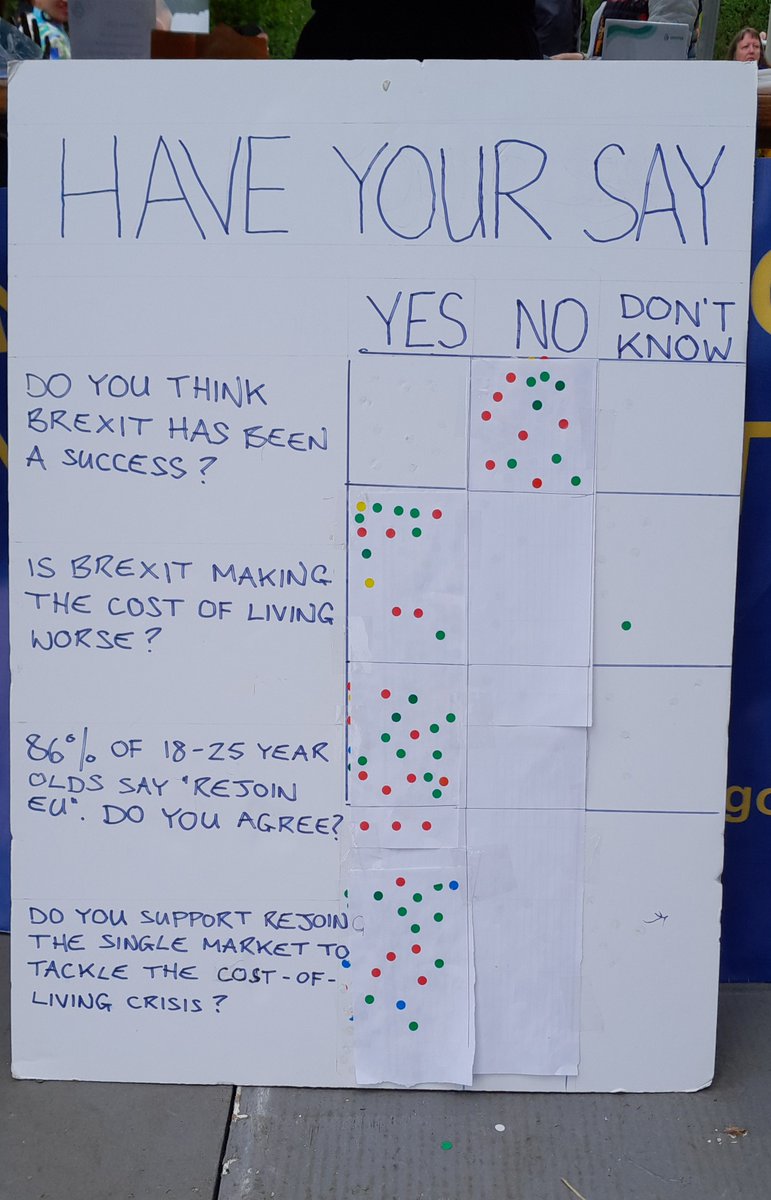 HAVE YOUR SAY
YES NO DON'T
KNOW
DO YOU THINK
BREXIT HAS BEEN
A SUCCESS?
IS BREXIT MAKING
THE COST OF LIVING
WORSE?
86% OF 18-25 YEAR
OLDS SAY "REJOIN
EU". DO YOU AGREE?
DO YOU SUPPORT REJOING
THE SINGLE MARKET TO
TACKLE THE COST-OF-
LIVING CRISIS?